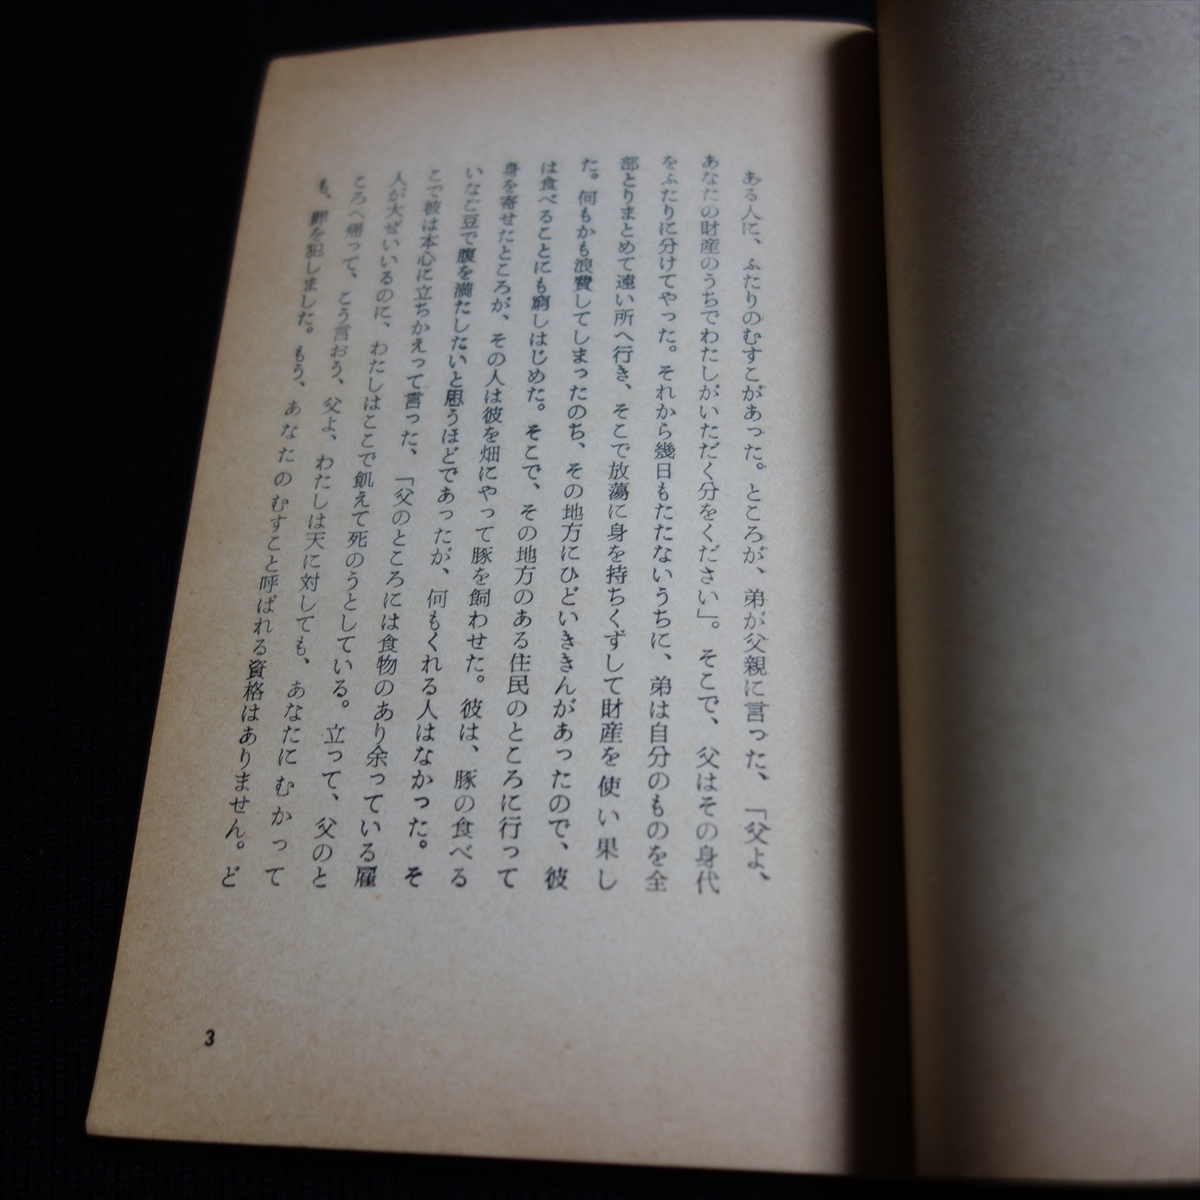 ある人に、ふたりのむすこがあった。ところが、弟が父親に言った、「父よ、
あなたの財産のうちでわたしがいただく分をください」。そこで、父はその身代
をふたりに分けてやった。それから幾日もたたないうちに、弟は自分のものを全
部とりまとめて遠い所へ行き、そこで放蕩に身を持ちくずして財産を使い果し
た。何もかも浪費してしまったのち、その地方にひどいききんがあったので、彼
は食べることにも窮しはじめた。そこで、その地方のある住民のところに行って
身を寄せたところが、その人は彼を畑にやって豚を飼わせた。彼は、豚の食べる
いなご豆で腹を満たしたいと思うほどであったが、何もくれる人はなかった。そ
こで彼は本心に立ちかえって言った、「父のところには食物のあり余っている雇
人が大ぜいいるのに、わたしはここで飢えて死のうとしている。立って、父のと
ころへ帰って、こう言おう、父よ、わたしは天に対しても、あなたにむかって
も、罪を犯しました。もう、あなたのむすこと呼ばれる資格はありません。ど
3